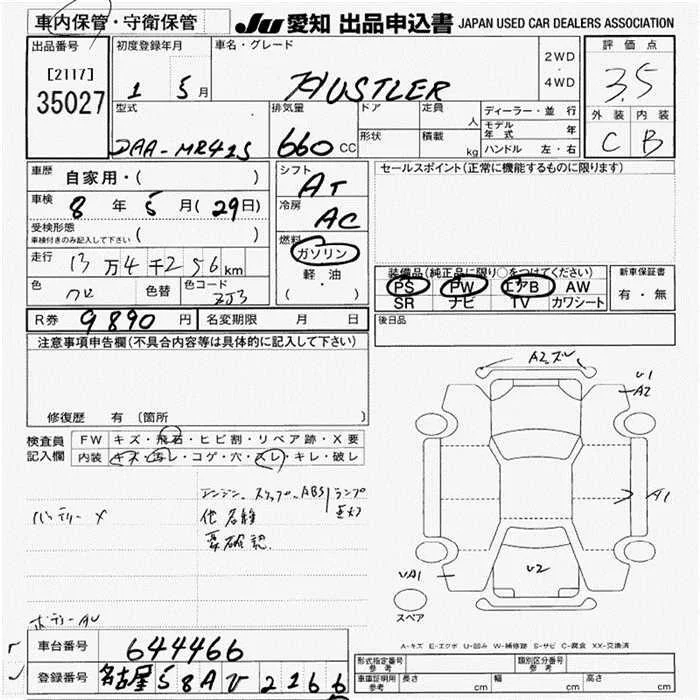 車内保管・守衛保管
JU 愛知 出品申込書 JAPAN USED CAR DEALERS ASSOCIATION
出品番号
[2117]
35027
初度登録年月
1 5 月
車名・グレード
HUSTLER
2WD
・
4WD
評価点
3.5
外装 内装
C B
型式
DAA-MR41S
排気量
660 CC
ドア
形状
定員
人
積載
kg
ディーラー・並行
モデル年式 年
ハンドル 左・右
車歴
自家用・( )
車検
8 年 5 月(29日)
受検形態
車検付きのみ記入して下さい ( )
走行
13万4千256km
色
色替
色コード
ZJ3
シフト
AT
冷房
AC
燃料
ガソリン
軽・油
( ・ )
セールスポイント(正常に機能するものに限ります)
装備品(純正品に限り○をつけてください)
PS PW エアB AW
SR ナビ TV カワシート
新車保証書
有・無
R券 9890 円
名変期限 月 日
後日品
注意事項申告欄(不具合内容等は具体的に記入して下さい)
修復歴 有(箇所
検査員
記入欄
FW キズ・飛石・ヒビ割・リペア跡・X要
内装 キズ・汚レ・コゲ・穴・スレ・キレ・破レ
バッテリー X
エンジン、スリップ、ABSランプ
他 名維
要確認
A2
U1
A2
A1
U2
UA1
スペア
A-キズ E-エクボ U-凹み W-補修跡 S-サビ C-腐食 XX-交換済
車台番号
644466
登録番号
名古屋 58A U 2166
形式指定番号
参考
類別区分番号
参考
車庫証明用
参考
長さ cm
幅 cm
高さ cm